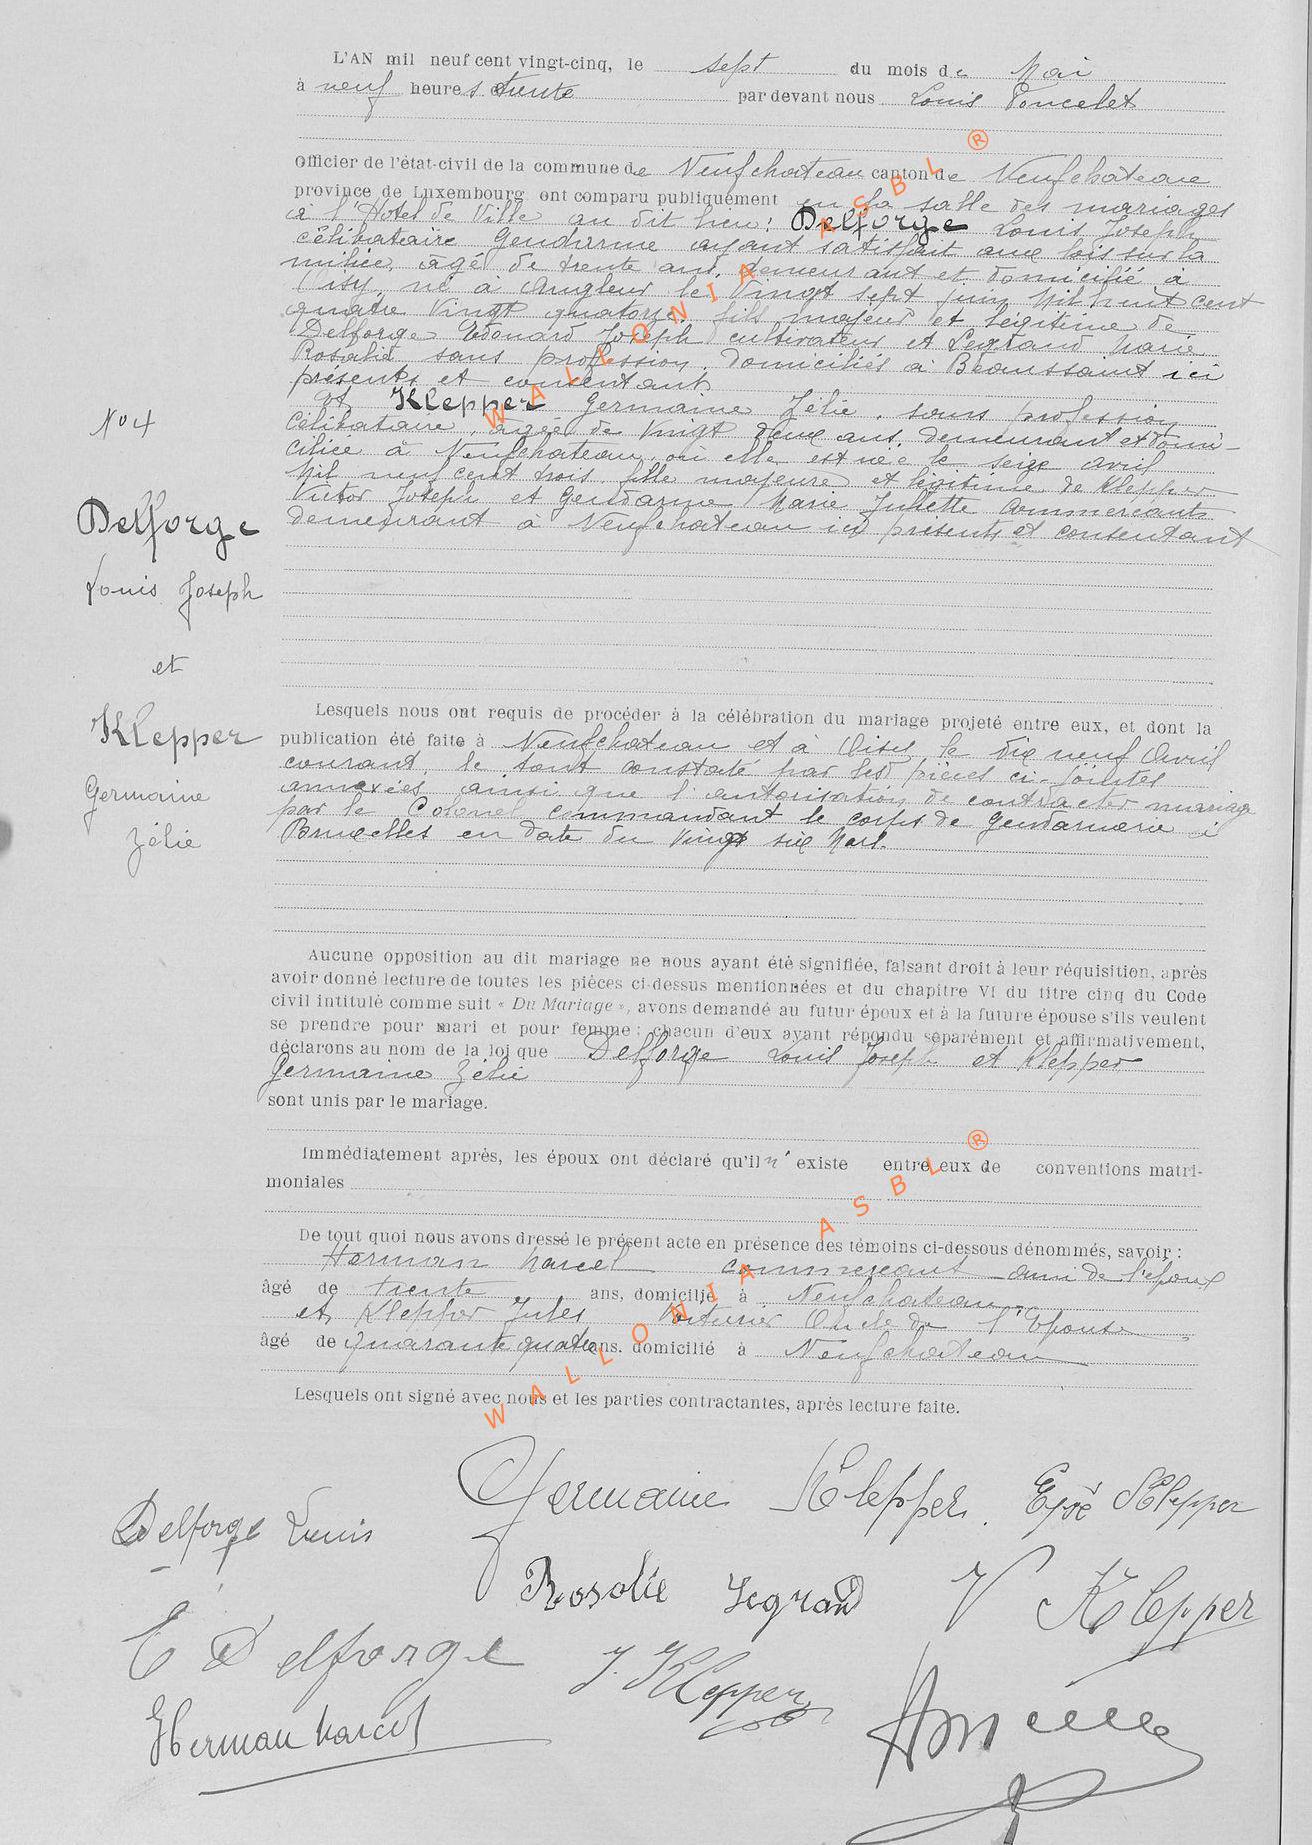 L'AN mil neuf cent vingt-cinq, le sept du mois de Mai
à neuf heures trente par devant nous Louis Poncelet
Officier de l'état-civil de la commune de Neufchateau canton de Neufchâteau
province de Luxembourg ont comparu publiquement en la salle des mariages
à l'Hotel de Ville au dit lieu : Delforge Louis Joseph
célibataire Gendarme ayant satisfait aux lois sur la
milice, âgé de trente ans, demeurant et domicilié à
né à Angleur le Vingt sept juin Mil huit cent
quatre Vingt quatorze, fils majeur et légitime de
Delforge Edouard Joseph cultivateur et Legrand Marie
Rosalie sans profession, domiciliés à Beaussaint ici
présents et consentant
et Klepper Germaine Zélie, sans profession
célibataire, âgée de Vingt deux ans, demeurant et domi-
ciliée à Neufchateau, où elle est née le seize avril
Mil neuf cent trois fille majeure et légitime de Klepper
Victor Joseph et Gendarme Marie Juliette commerçants
demeurant à Neufchateau ici présents et consentant
No 4
Delforge
Louis Joseph
et
Klepper
Germaine
Zélie
Lesquels nous ont requis de procéder à la célébration du mariage projeté entre eux, et dont la
publication été faite à Neufchateau et à le dix neuf Avril
courant, le tout constaté par les pièces ci-jointes
annexées ainsi que l'autorisation de contracter mariage
par le Colonel commandant le corps de Gendarmerie à
Bruxelles en date du Vingt six Mars.
Aucune opposition au dit mariage ne nous ayant été signifiée, faisant droit à leur réquisition, après
avoir donné lecture de toutes les pièces ci-dessus mentionnées et du chapitre VI du titre cinq du Code
civil intitulé comme suit « Du Mariage », avons demandé au futur époux et à la future épouse s'ils veulent
se prendre pour mari et pour femme ; chacun d'eux ayant répondu séparément et affirmativement,
déclarons au nom de la loi que Delforge Louis Joseph et Klepper
Germaine Zélie
sont unis par le mariage.
Immédiatement après, les époux ont déclaré qu'il n' existe entre eux de conventions matri-
moniales
De tout quoi nous avons dressé le présent acte en présence des témoins ci-dessous dénommés, savoir :
Herman Marcel commerçant ami de l'époux
âgé de trente ans, domicilié à Neufchateau
et Klepper Jules Voiturier Oncle de l'Epouse
âgé de quarante quatre ans. domicilié à Neufchateau
Lesquels ont signé avec nous et les parties contractantes, après lecture faite.
Germaine Klepper. Epse Klepper
Delforge Louis
Rosalie Legrand V Klepper
E Delforge J. Klepper
Herman Marcel
WALLONIA ASBL ®
WALLONIA ASBL ®